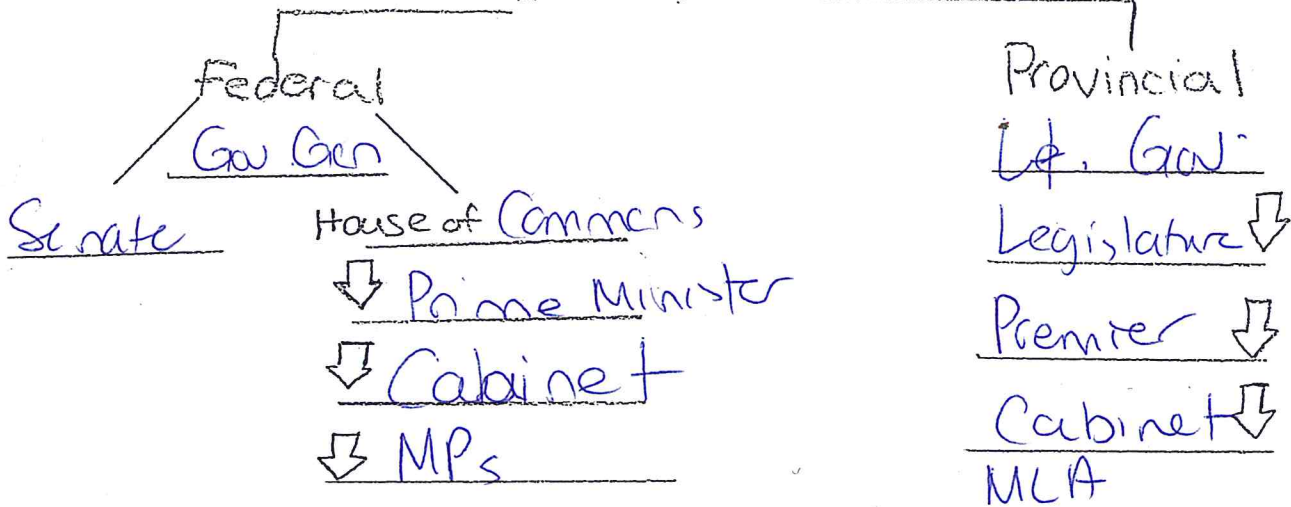 Federal
Gov Gen
Senate
House of Commons
Prime Minister
Cabinet
MPs
Provincial
Lt. Gov.
Legislature
Premier
Cabinet
MLA